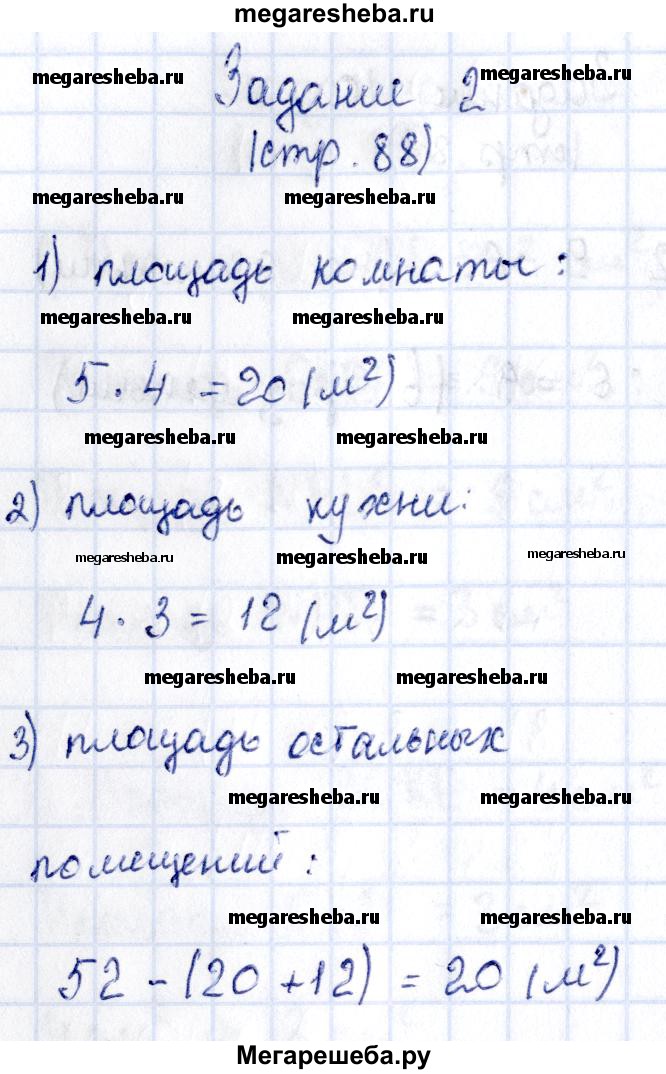 megaresheba.ru
megaresheba.ru megaresheba.ru
Задание 2
(стр. 88)
megaresheba.ru megaresheba.ru
1) площадь комнаты:
megaresheba.ru megaresheba.ru
5 · 4 = 20 (м²)
megaresheba.ru megaresheba.ru
2) площадь кухни:
megaresheba.ru megaresheba.ru megaresheba.ru
4 · 3 = 12 (м²)
megaresheba.ru megaresheba.ru
3) площадь остальных
megaresheba.ru megaresheba.ru
помещений:
megaresheba.ru megaresheba.ru
52 - (20 + 12) = 20 (м²)
Мегарешеба.ру